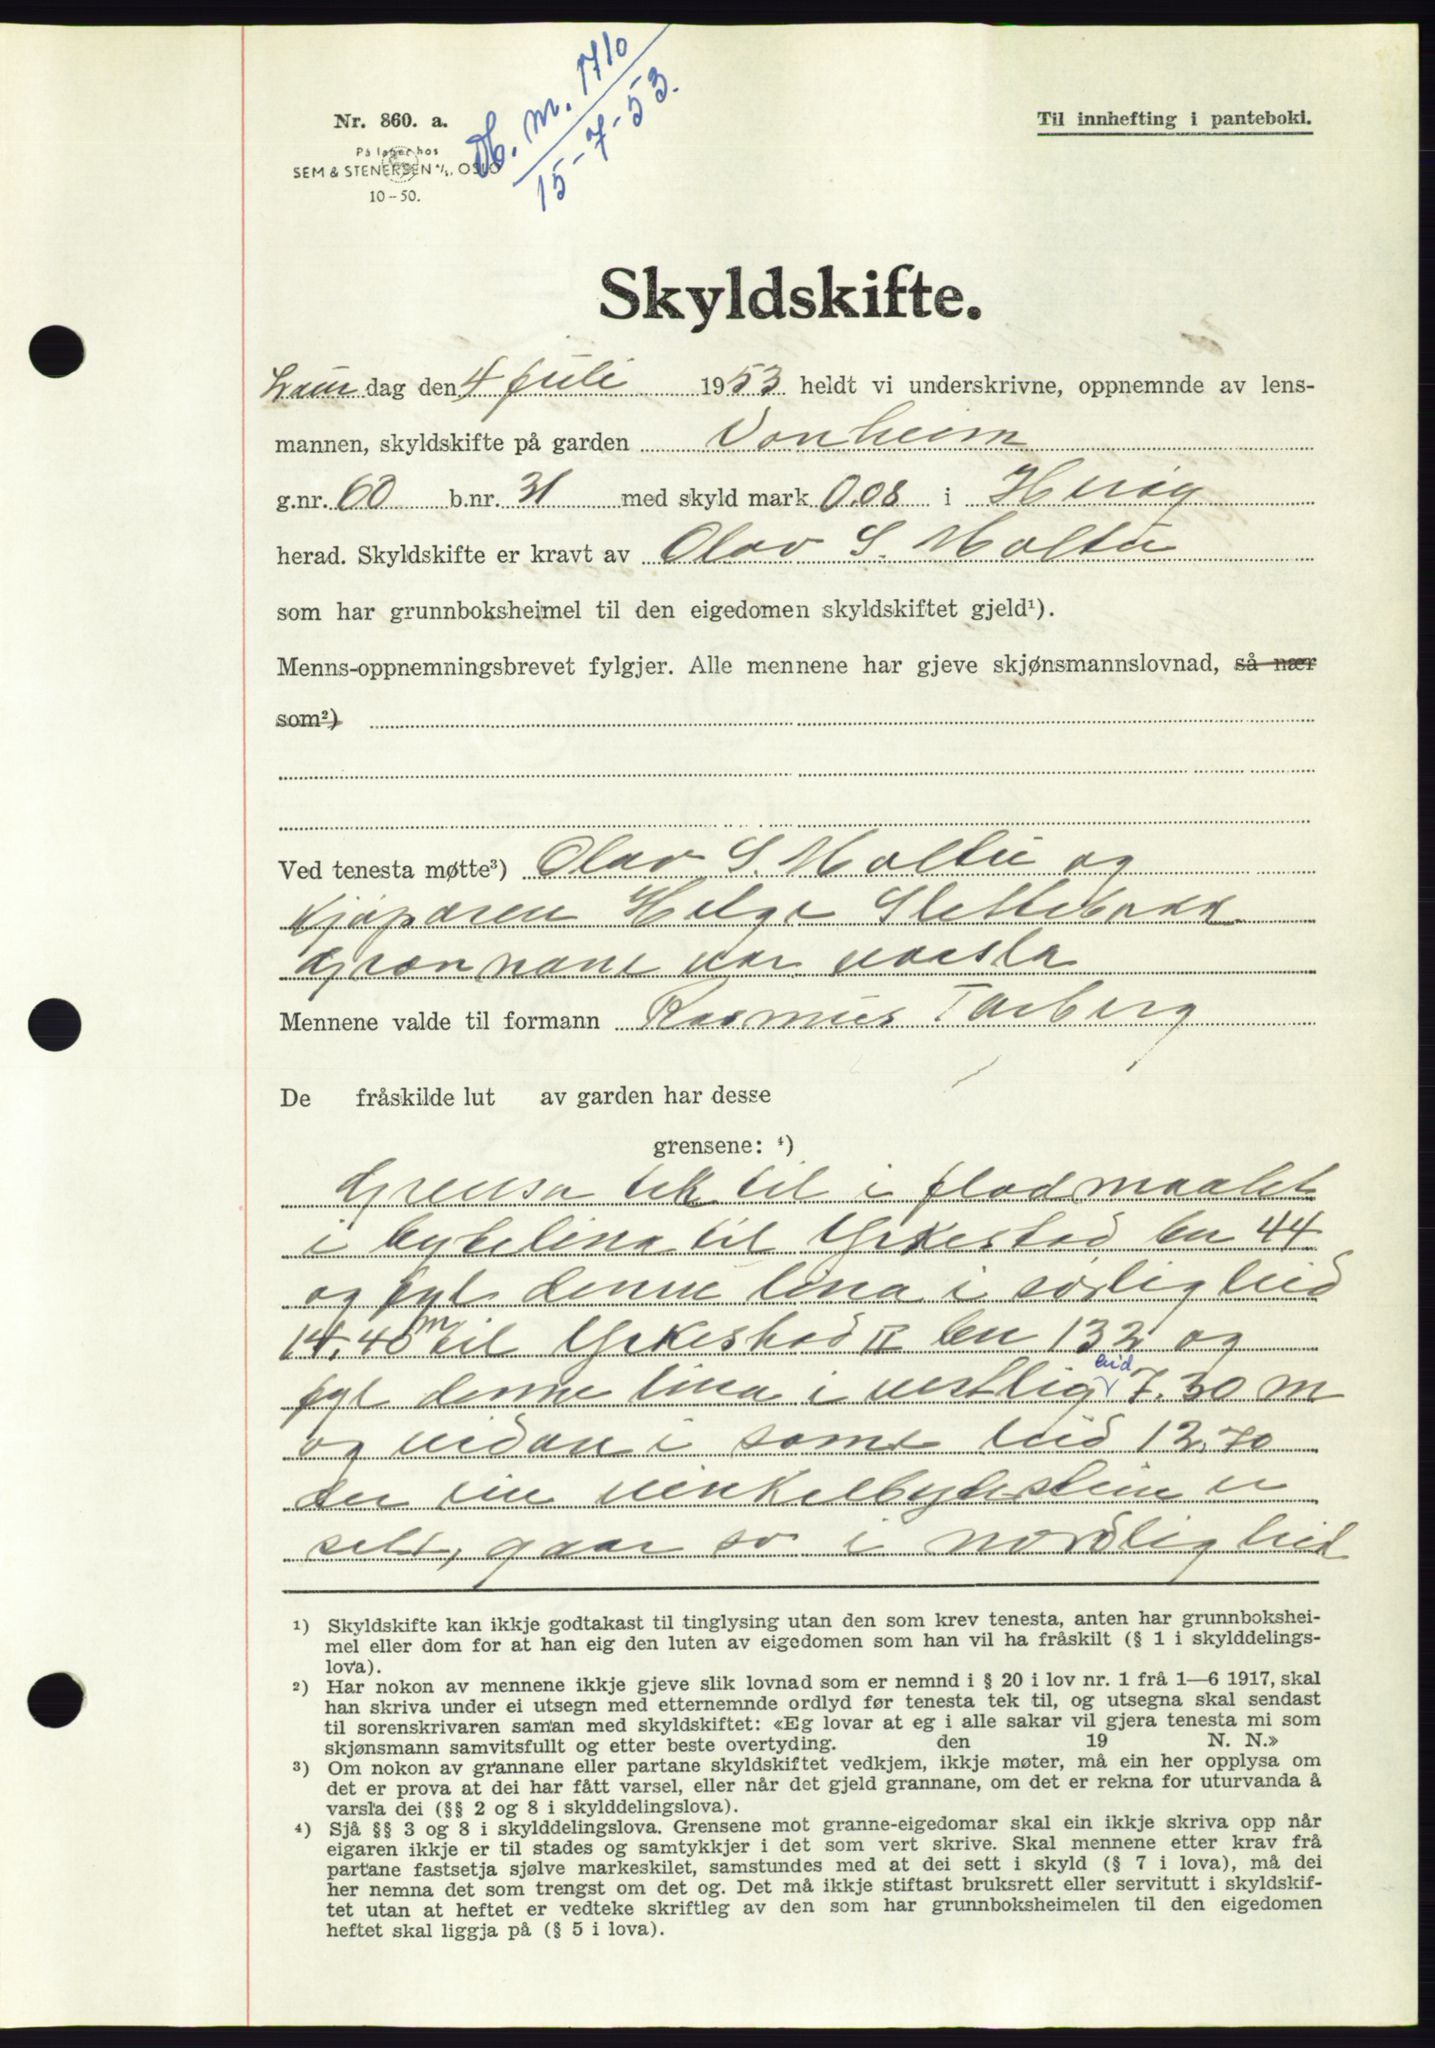 Nr. 860. a.
På lager hos
SEM & STENERSEN A/S, OSLO
10-50.
Db. nr. 1710
15-7-53.
Til innhefting i panteboki.
Skyldskifte.
Laur dag den 4 juli 1953 heldt vi underskrivne, oppnemnde av lens-
mannen, skyldskifte på garden Vonheim
g.nr. 60 b.nr. 31 med skyld mark 0.08 i Herøy
herad. Skyldskifte er kravt av Olav S. Moltu
som har grunnboksheimel til den eigedomen skyldskiftet gjeld¹).
Menns-oppnemningsbrevet fylgjer. Alle mennene har gjeve skjønsmannslovnad, så nær
som²)
Ved tenesta møtte³) Olav S. Moltu og
kjøparen Helge Slettebakk
Grannane var varsla
Mennene valde til formann Rasmus Tarberg
De fråskilde lut av garden har desse
grensene: ⁴)
Grensa tek til i flodmaalet
i bytelina til Yrkestad bn 44
og fyl denne lina i sørlig leid
14,40 m til Yrkestad II bn 132 og
fyl denne lina i vestlig leid 7.30 m
og vidare i same leid 12.70
der ein vinkelbytestein er
sett, gaar so i nordlig leid
¹) Skyldskifte kan ikkje godtakast til tinglysing utan den som krev tenesta, anten har grunnbokshei-
mel eller dom for at han eig den luten av eigedomen som han vil ha fråskilt (§ 1 i skylddelings-
lova).
²) Har nokon av mennene ikkje gjeve slik lovnad som er nemnd i § 20 i lov nr. 1 frå 1—6 1917, skal
han skriva under ei utsegn med etternemnde ordlyd før tenesta tek til, og utsegna skal sendast
til sorenskrivaren saman med skyldskiftet: «Eg lovar at eg i alle sakar vil gjera tenesta mi som
skjønsmann samvitsfullt og etter beste overtyding. den 19 N. N.»
³) Om nokon av grannane eller partane skyldskiftet vedkjem, ikkje møter, må ein her opplysa om
det er prova at dei har fått varsel, eller når det gjeld grannane, om det er rekna for uturvanda å
varsla dei (§§ 2 og 8 i skylddelingslova).
⁴) Sjå §§ 3 og 8 i skylddelingslova. Grensene mot granne-eigedomar skal ein ikkje skriva opp når
eigaren ikkje er til stades og samtykkjer i det som vert skrive. Skal mennene etter krav frå
partane fastsetja sjølve markeskilet, samstundes med at dei sett i skyld (§ 7 i lova), må dei
her nemna det som trengst om det og. Det må ikkje stiftast bruksrett eller servitutt i skyldskif-
tet utan at heftet er vedteke skriftleg av den som har grunnboksheimelen til den eigedomen
heftet skal liggja på (§ 5 i lova).